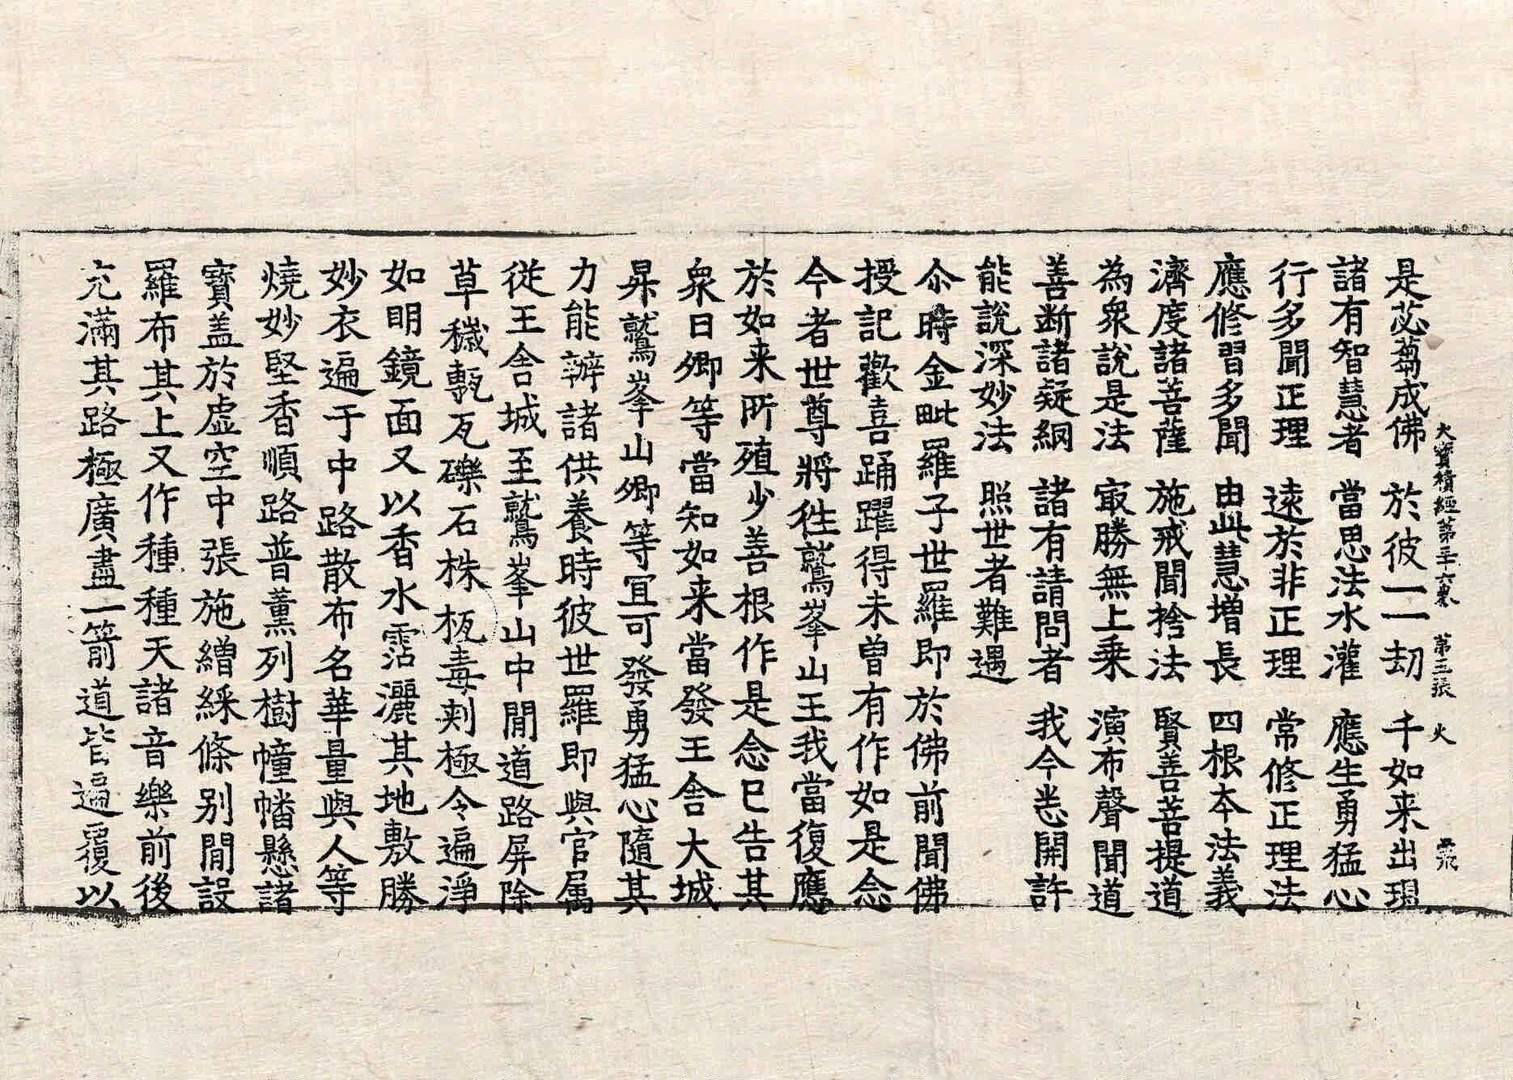 大寳積經第三十六 第五張 火
是苾蒭成佛 於彼一一劫 千如来出現
諸有智慧者 當思法水灌 應生勇猛心
行多聞正理 遠於非正理 常修正理法
應修習多聞 由此慧增長 四根本法義
濟度諸菩薩 施戒聞捨法 賢善菩提道
為衆說是法 冣勝無上乗 演布聲聞道
善断諸疑網 諸有請問者 我今悉開許
能說深妙法 照世者難遇
尒時金毗羅子世羅即於佛前聞佛
授記歡喜踊躍得未曽有作如是念
今者世尊將徃鷲峯山王我當復應
於如来所殖少善根作是念已告其
衆曰卿等當知如来當發王舍大城
昇鷲峯山卿等冝可發勇猛心隨其
力能辦諸供養時彼世羅即與官属
從王舍城至鷲峯山中閒道路屏除
草穢甎瓦礫石株杌毒刺極令遍淨
如明鏡面又以香水霑灑其地敷勝
妙衣遍于中路散布名華量與人等
燒妙堅香順路普薰列樹幢幡懸諸
寶盖於虚空中張施繒綵條別閒設
羅布其上又作種種天諸音樂前後
充滿其路極廣盡一箭道皆遍覆以